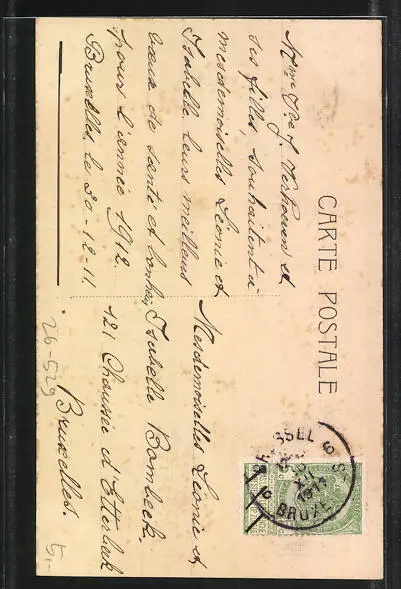 CARTE POSTALE
Mme Vve J. Verhoeven et
ses filles, souhaitent à
mesdemoiselles Léonie et
Isabelle leurs meilleurs
vœux de santé et bonheur
pour l'année 1912.
Bruxelles, le 30-12-11.
Mesdemoiselles Léonie et
Isabelle Bombeck
121 Chaussée d'Etterbeek
Bruxelles
BRUSSEL
6 6
XII
1911
BRUXELLES
26-529
5,-